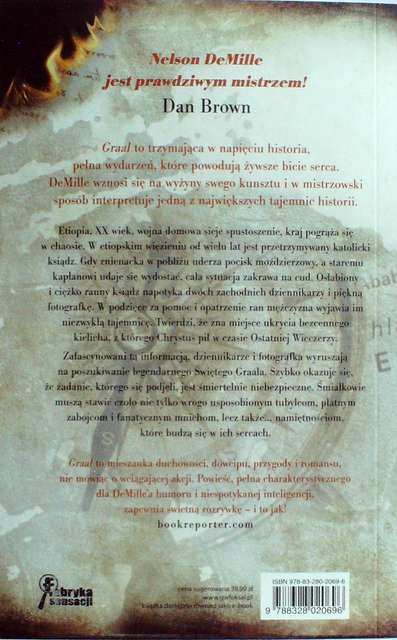 Nelson DeMille
jest prawdziwym mistrzem!
Dan Brown
Graal to trzymająca w napięciu historia,
pełna wydarzeń, które powodują żywsze bicie serca.
DeMille wznosi się na wyżyny swego kunsztu i w mistrzowski
sposób interpretuje jedną z największych tajemnic historii.
Etiopia, XX wiek, wojna domowa sieje spustoszenie, kraj pogrąża się
w chaosie. W etiopskim więzieniu od wielu lat jest przetrzymywany katolicki
ksiądz. Gdy znienacka w pobliżu uderza pocisk moździerzowy, a staremu
kapłanowi udaje się wydostać, cała sytuacja zakrawa na cud. Osłabiony
i ciężko ranny ksiądz napotyka dwóch zachodnich dziennikarzy i piękną
fotografkę. W podzięce za pomoc i opatrzenie ran mężczyzna wyjawia im
niezwykłą tajemnicę. Twierdzi, że zna miejsce ukrycia bezcennego
kielicha, z którego Chrystus pił w czasie Ostatniej Wieczerzy.
Zafascynowani tą informacją, dziennikarze i fotografka wyruszają
na poszukiwanie legendarnego Świętego Graala. Szybko okazuje się,
że zadanie, którego się podjęli, jest śmiertelnie niebezpieczne. Śmiałkowie
muszą stawić czoło nie tylko wrogo usposobionym tubylcom, płatnym
zabójcom i fanatycznym mnichom, lecz także... namiętnościom,
które budzą się w ich sercach.
Graal to mieszanka duchowości, dowcipu, przygody i romansu,
nie mówiąc o wciągającej akcji. Powieść, pełna charakterystycznego
dla DeMille'a humoru i niespotykanej inteligencji,
zapewnia świetną rozrywkę – i to jak!
bookreporter.com
fabryka
sensacji
cena sugerowana 39,99 zł
www.gwfoksal.pl
książka dostępna również jako e-book
ISBN 978-83-280-2069-6
9 788328 020696